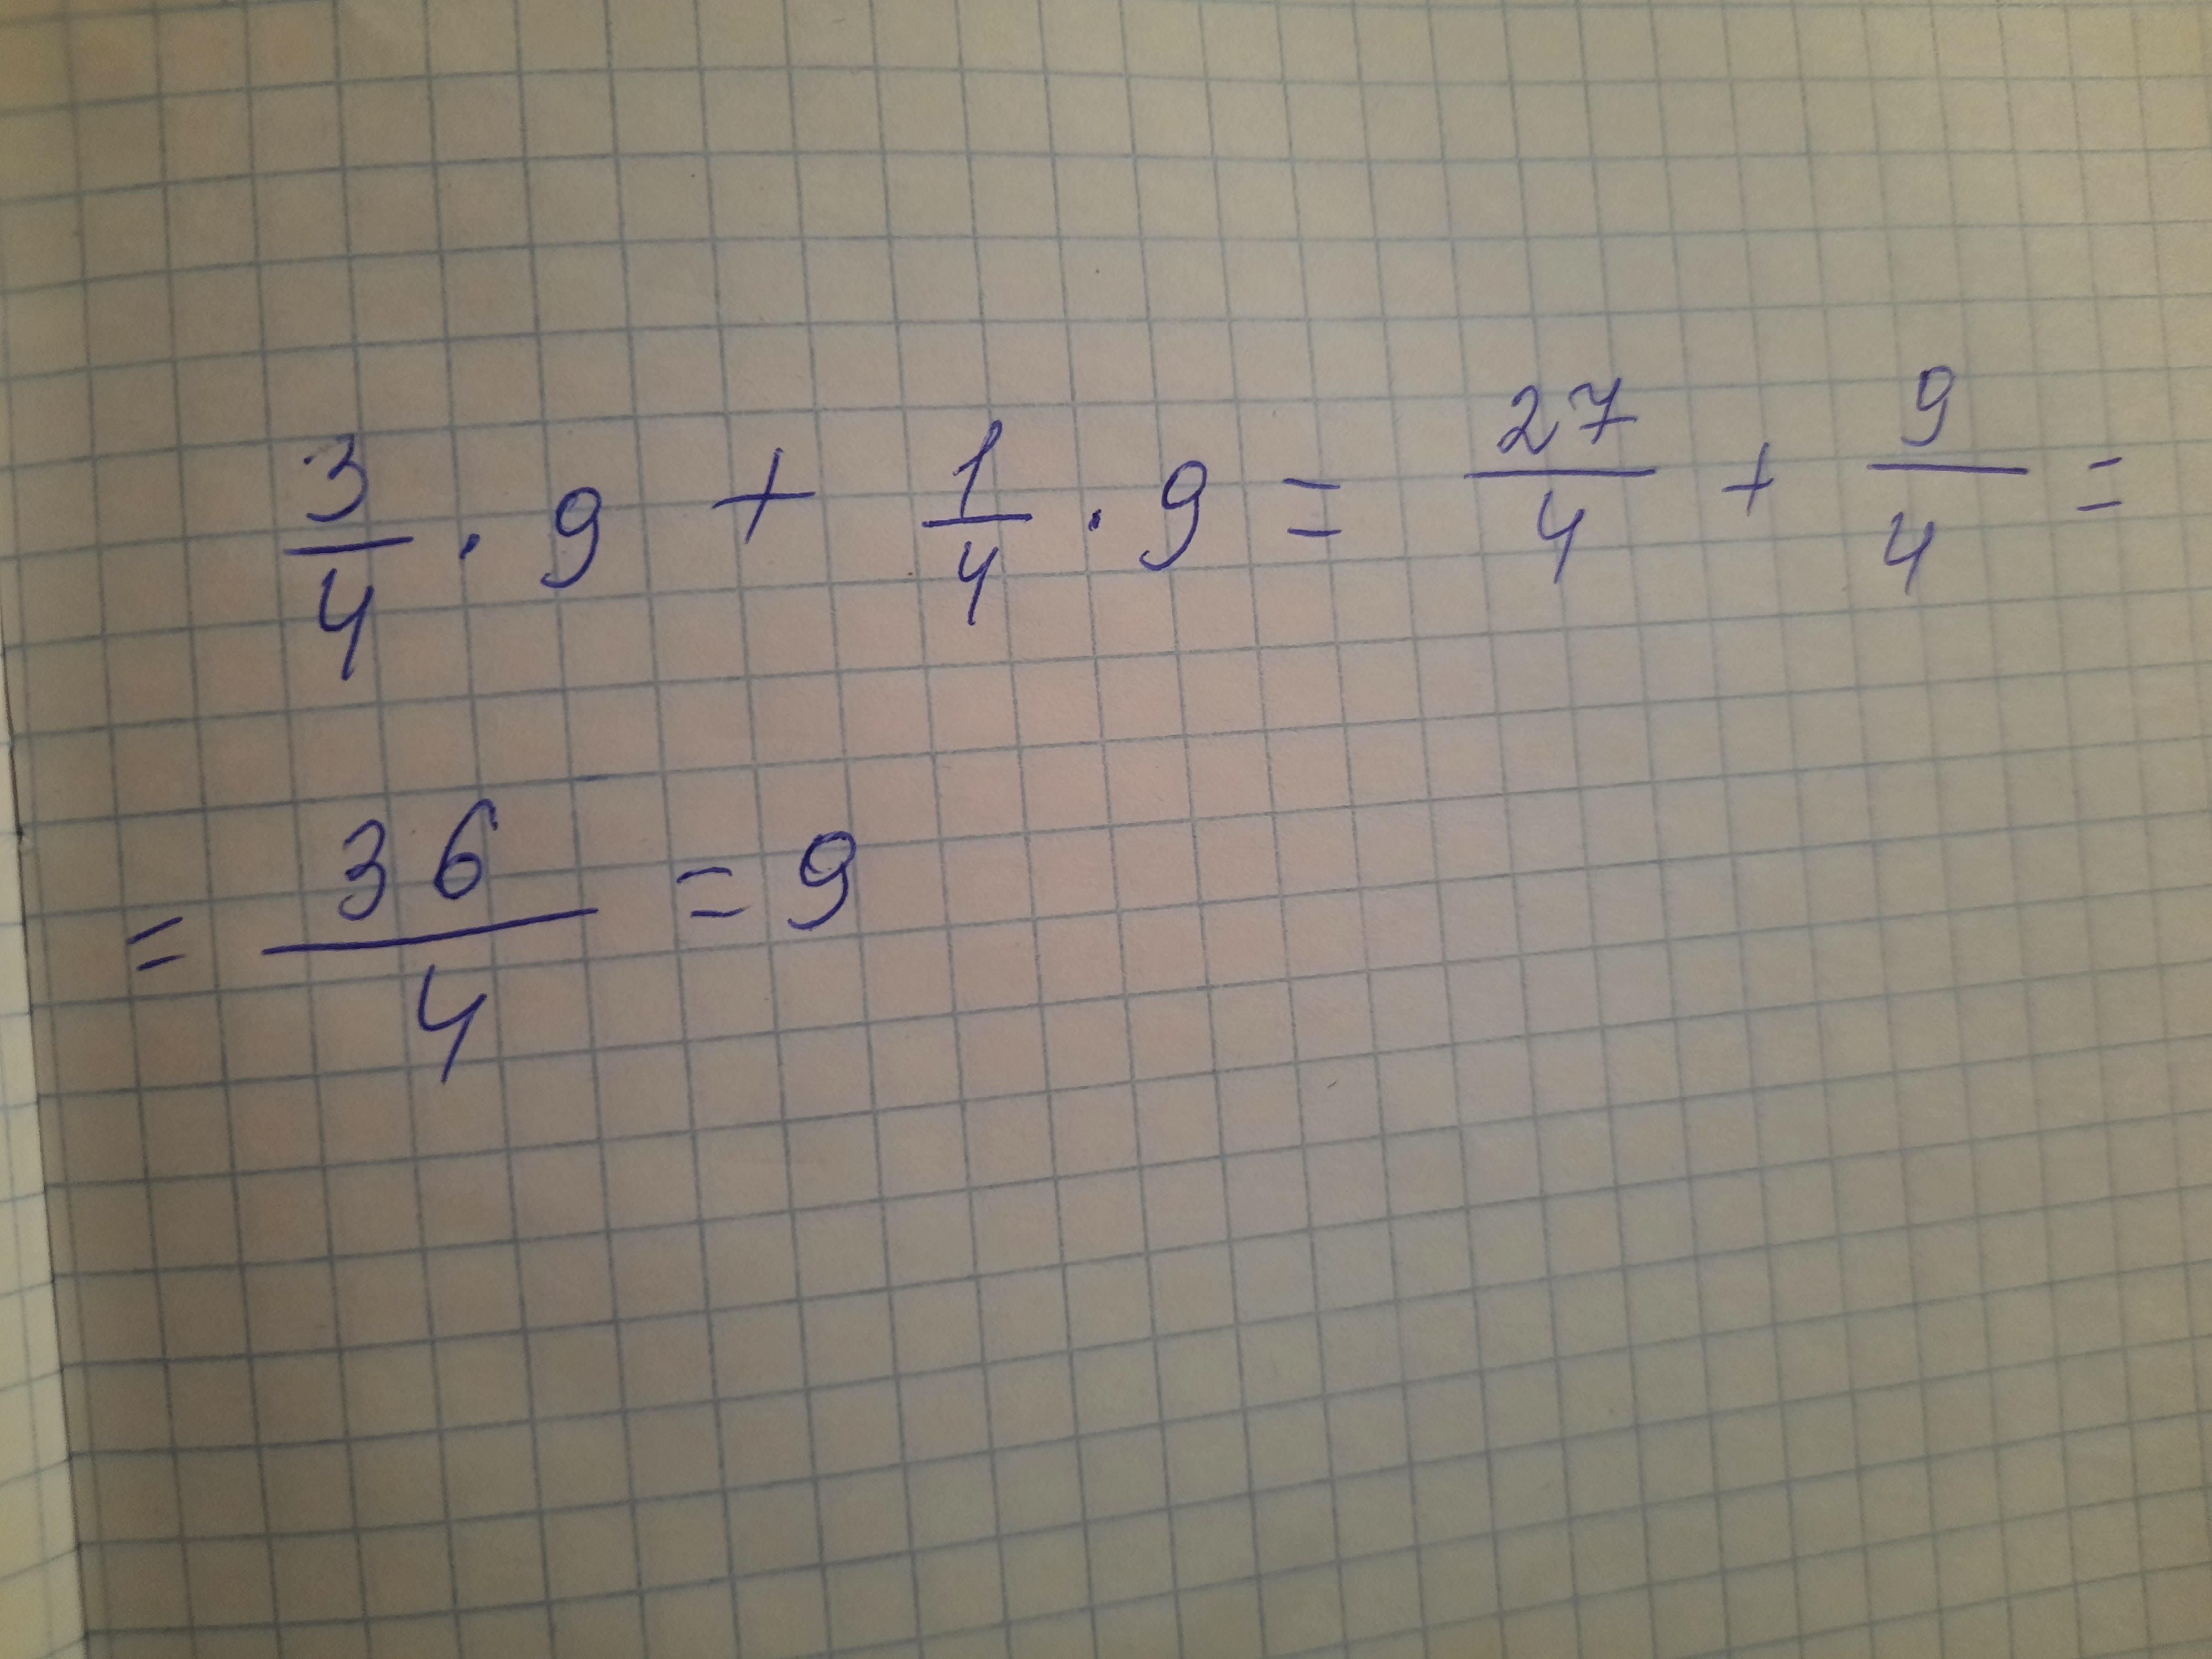 3/4 · 9 + 1/4 · 9 = 27/4 + 9/4 =
= 36/4 = 9